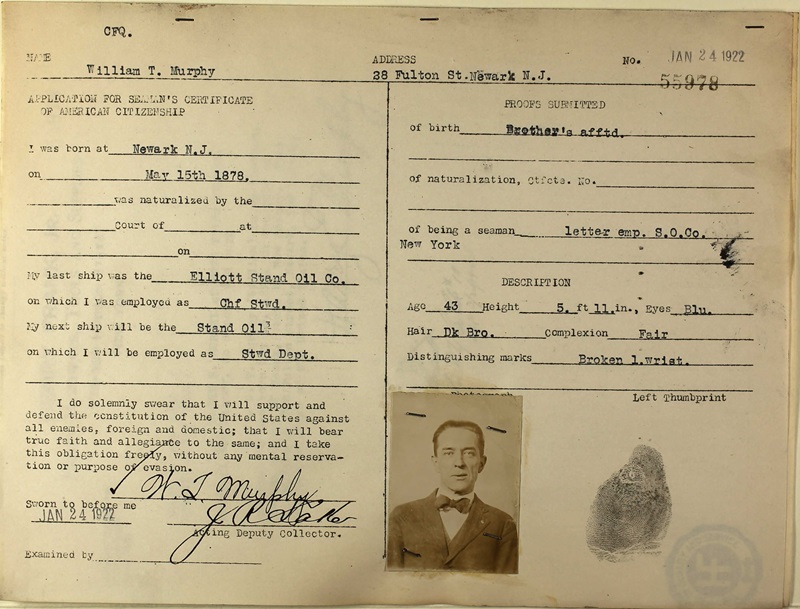 CFQ.
NAME William T. Murphy
ADDRESS 28 Fulton St. Newark N.J.
No. JAN 24 1922
55978
APPLICATION FOR SEAMAN'S CERTIFICATE
OF AMERICAN CITIZENSHIP
I was born at Newark N.J.
on May 15th 1878.
was naturalized by the
Court of at
on
My last ship was the Elliott Stand Oil Co.
on which I was employed as Chf Stwd.
My next ship will be the Stand Oil
on which I will be employed as Stwd Dept.
I do solemnly swear that I will support and
defend the constitution of the United States against
all enemies, foreign and domestic; that I will bear
true faith and allegiance to the same; and I take
this obligation freely, without any mental reserva-
tion or purpose of evasion.
W. T. Murphy
Sworn to before me
JAN 24 1922
Acting Deputy Collector.
Examined by
PROOFS SUBMITTED
of birth Brother's afftd.
of naturalization, Ctfcte. No.
of being a seaman letter emp. S.O.Co.
New York
DESCRIPTION
Age 43 Height 5. ft 11.in., Eyes Blu.
Hair Dk Bro. Complexion Fair
Distinguishing marks Broken l.wrist.
Photograph Left Thumbprint